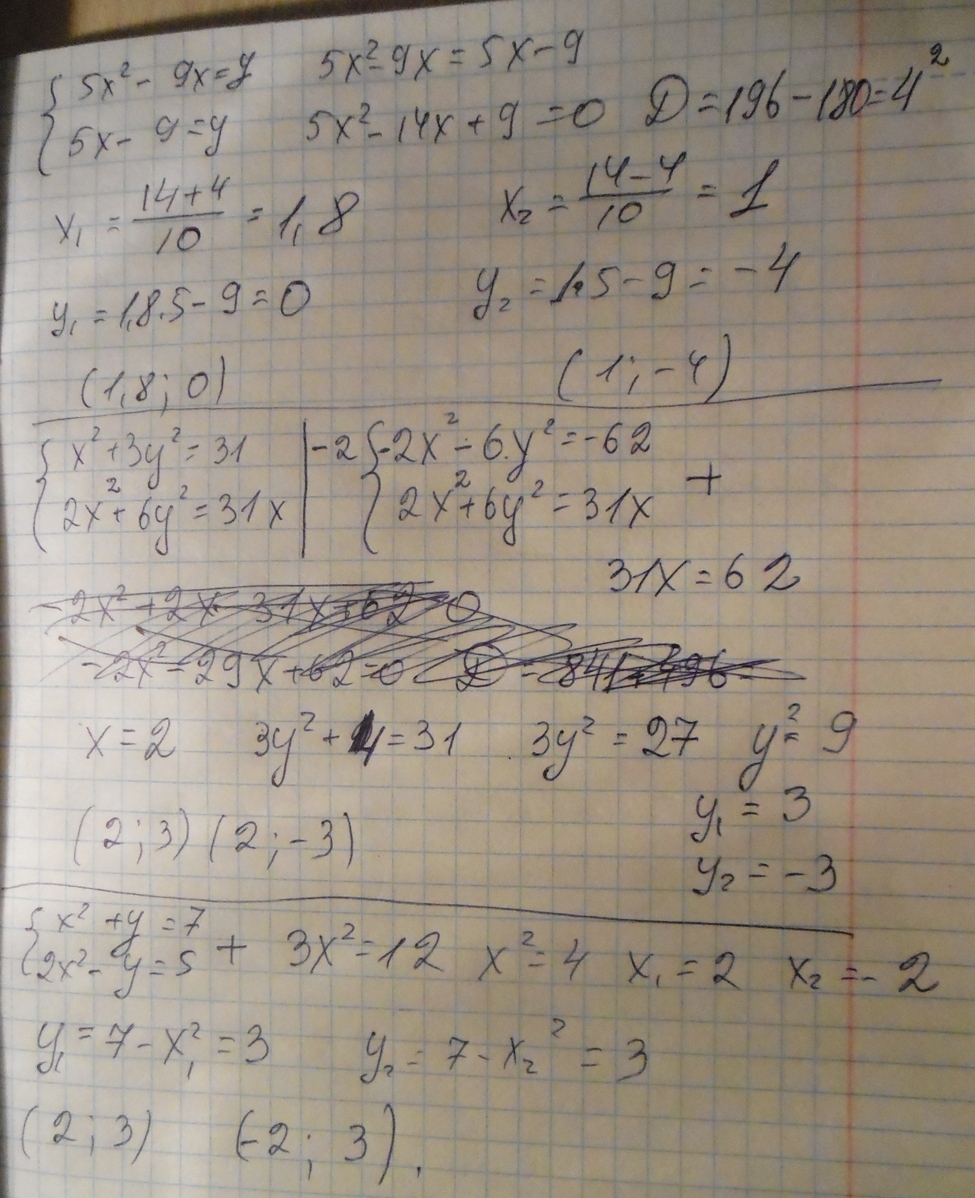 { 5x² - 9x = y   5x² - 9x = 5x - 9
5x - 9 = y   5x² - 14x + 9 = 0   D = 196 - 180 = 4²
x₁ = (14+4)/10 = 1,8   x₂ = (14-4)/10 = 1
y₁ = 1,8·5 - 9 = 0   y₂ = 1·5 - 9 = -4
(1,8; 0)   (1; -4)
{ x² + 3y² = 31 | -2 { -2x² - 6y² = -62
2x² + 6y² = 31x | 2x² + 6y² = 31x +
31x = 62
x = 2   3y² + 4 = 31   3y² = 27   y² = 9
y₁ = 3
(2; 3) (2; -3)
y₂ = -3
{ x² + y = 7
2x² - y = 5 + 3x² = 12   x² = 4   x₁ = 2   x₂ = -2
y₁ = 7 - x₁² = 3   y₂ = 7 - x₂² = 3
(2; 3)   (-2; 3).